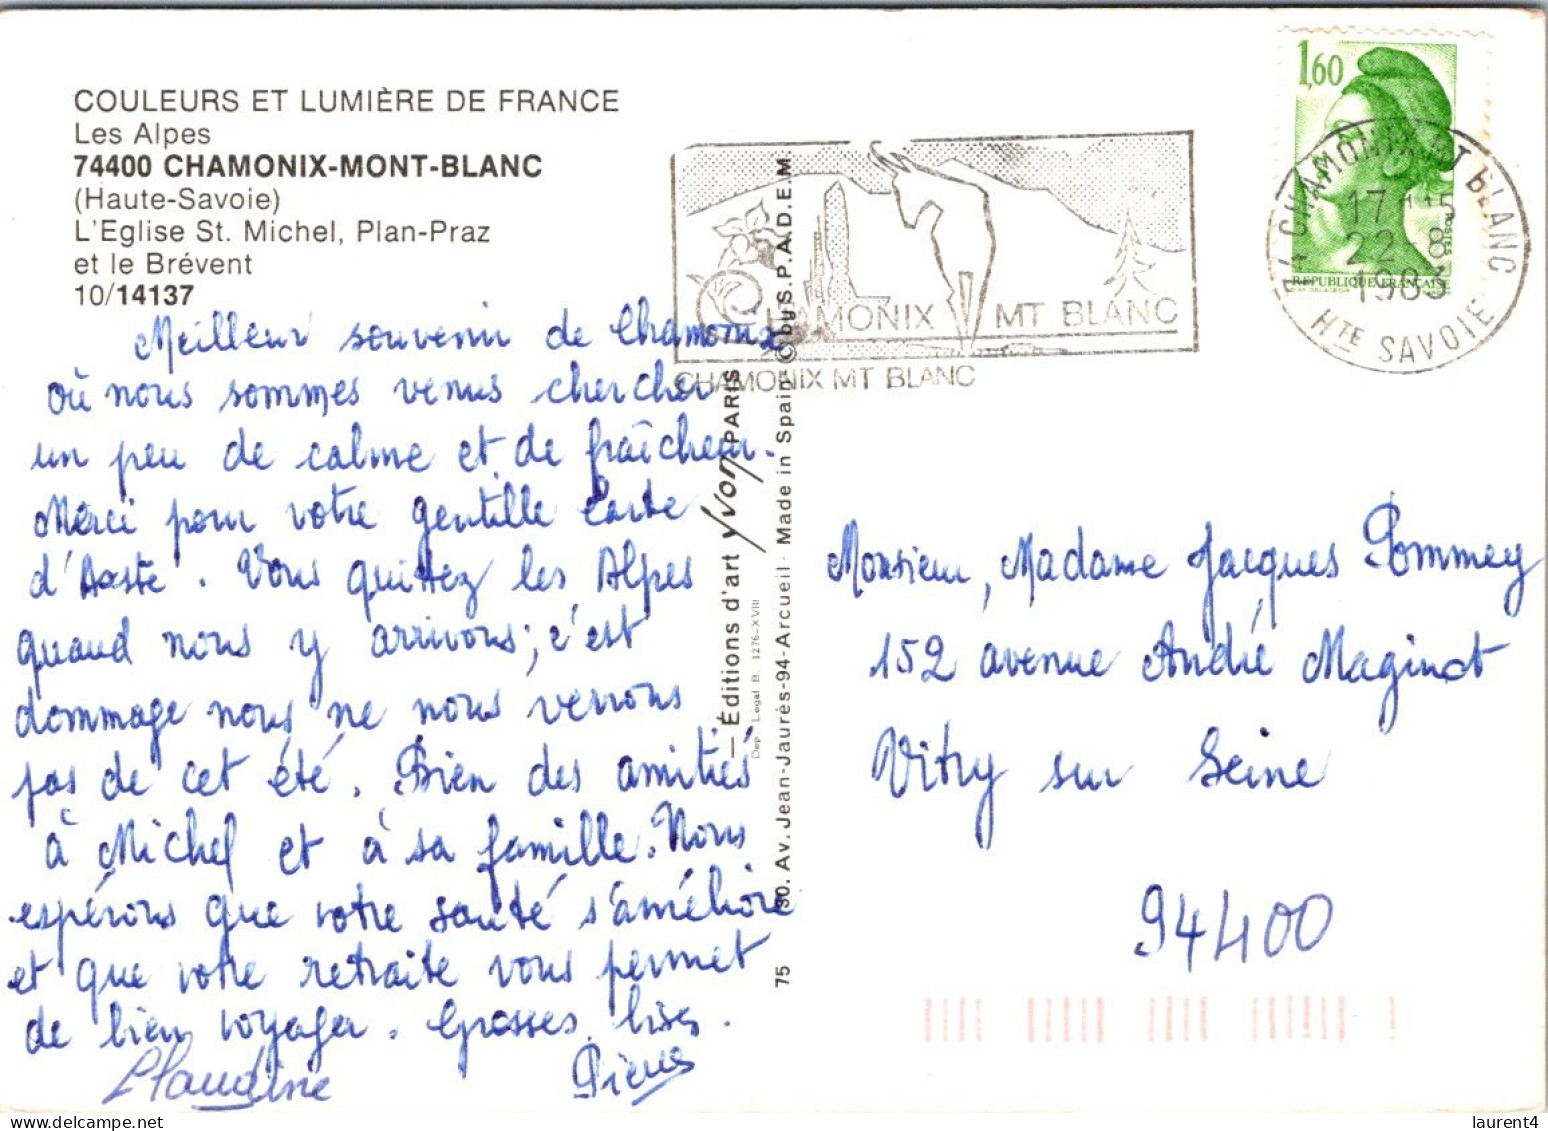 COULEURS ET LUMIÈRE DE FRANCE
Les Alpes
74400 CHAMONIX-MONT-BLANC
(Haute-Savoie)
L'Eglise St. Michel, Plan-Praz
et le Brévent
10/14137
Meilleur souvenir de Chamonix
où nous sommes venus chercher
un peu de calme et de fraîcheur.
Merci pour votre gentille carte
d'Aoste. Vous quittez les Alpes
quand nous y arrivons; c'est
dommage nous ne nous verrons
pas de cet été. Bien des amitiés
à Michel et à sa famille. Nous
espérons que votre santé s'améliore
et que votre retraite vous permet
de bien voyager. Grosses bises.
Claudine
Pierre
75 — Éditions d'art yvon PARIS
Dep. Legal B. 1276-XVIII
30. Av. Jean-Jaurès-94-Arcueil · Made in Spain © by S.P.A.D.E.M.
CHAMONIX MT BLANC
CHAMONIX MT BLANC
1,60
POSTES
REPUBLIQUE FRANÇAISE
74 CHAMONIX MT BLANC
17H15
22-8
1983
HTE SAVOIE
Monsieur, Madame Jacques Pommey
152 avenue André Maginot
Vitry sur Seine
94400
laurent4